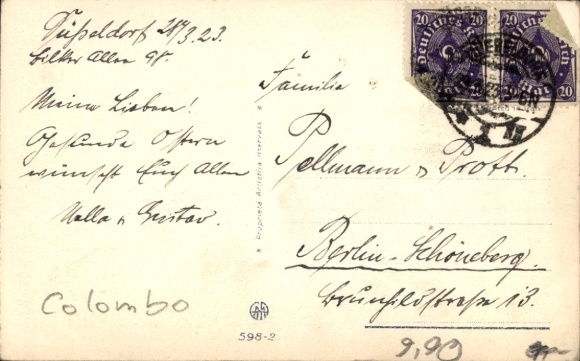 Düsseldorf 28/3.23.
Bilker Allee 98.
Meine Lieben!
Gesunde Ostern
wünscht Euch Allen
Halla u Gustav.
Colombo
Proprietà Artistica riservata
598-2
20 20
Deutsches Reich
20 20
Familie
Pellmann u Prott.
Berlin-Schöneberg.
Brunhildstraße 13.
9,90